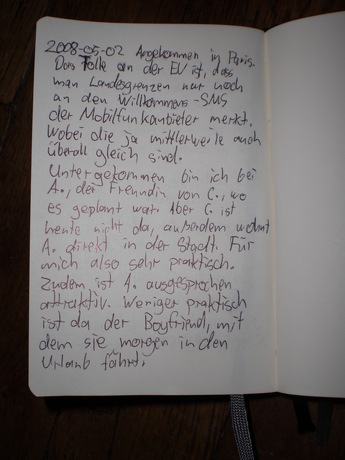 2008-05-02 Angekommen in Paris.
Das Tolle an der EU ist, dass
man Landesgrenzen nur noch
an den Willkommens-SMS
der Mobilfunkanbieter merkt.
Wobei die ja mittlerweile auch
überall gleich sind.
Untergekommen bin ich bei
A., der Freundin von C., wo
es geplant war. Aber C. ist
heute nicht da, außerdem wohnt
A. direkt in der Stadt. Für
mich also sehr praktisch.
Zudem ist A. ausgesprochen
attraktiv. Weniger praktisch
ist da der Boyfriend, mit
dem sie morgen in den
Urlaub fährt.